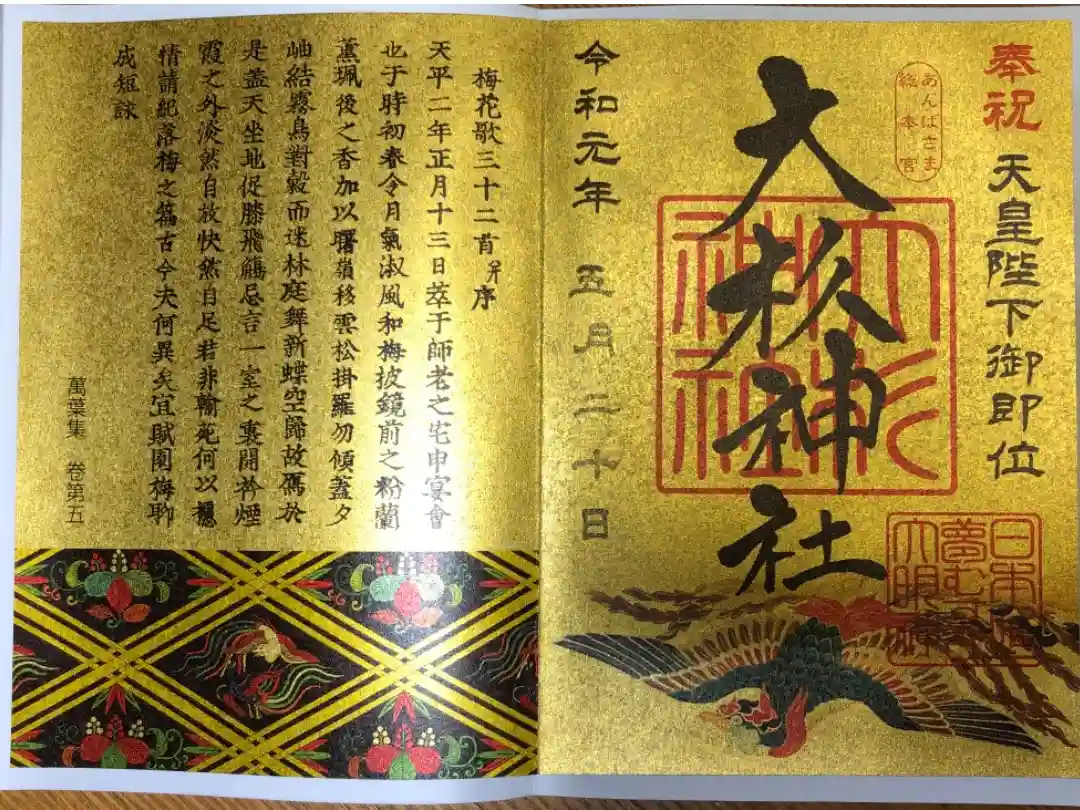 奉祝 天皇陛下御即位
あんばさま
総本宮
大杉神社
大杉
神社
大明神
令和元年 五月二十日
梅花歌三十二首并序
天平二年正月十三日萃于師老之宅申宴會
也于時初春令月氣淑風和梅披鏡前之粉蘭
薫珮後之香加以曙嶺移雲松掛羅勿傾蓋夕
岫結霧鳥對縠而迷林庭舞新蝶空歸故鴈於
是盖天坐地促膝飛觴忘言一室之裏開衿煙
霞之外淡然自放快然自足若非翰苑何以攄
情請紀落梅之篇古今夫何異矣宜賦園梅聊
成短詠
萬葉集 卷第五